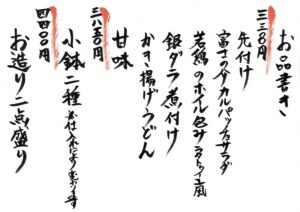 お品書き
三三〇〇円
先付け
富士の介カルパッチョサラダ
若鶏のホイル包みラタトゥイユ風
銀ダラ煮付け
かき揚げうどん
甘味
三八五〇円
小鉢二種 お仕入れにより変わります
四四〇〇円
お造り二点盛り